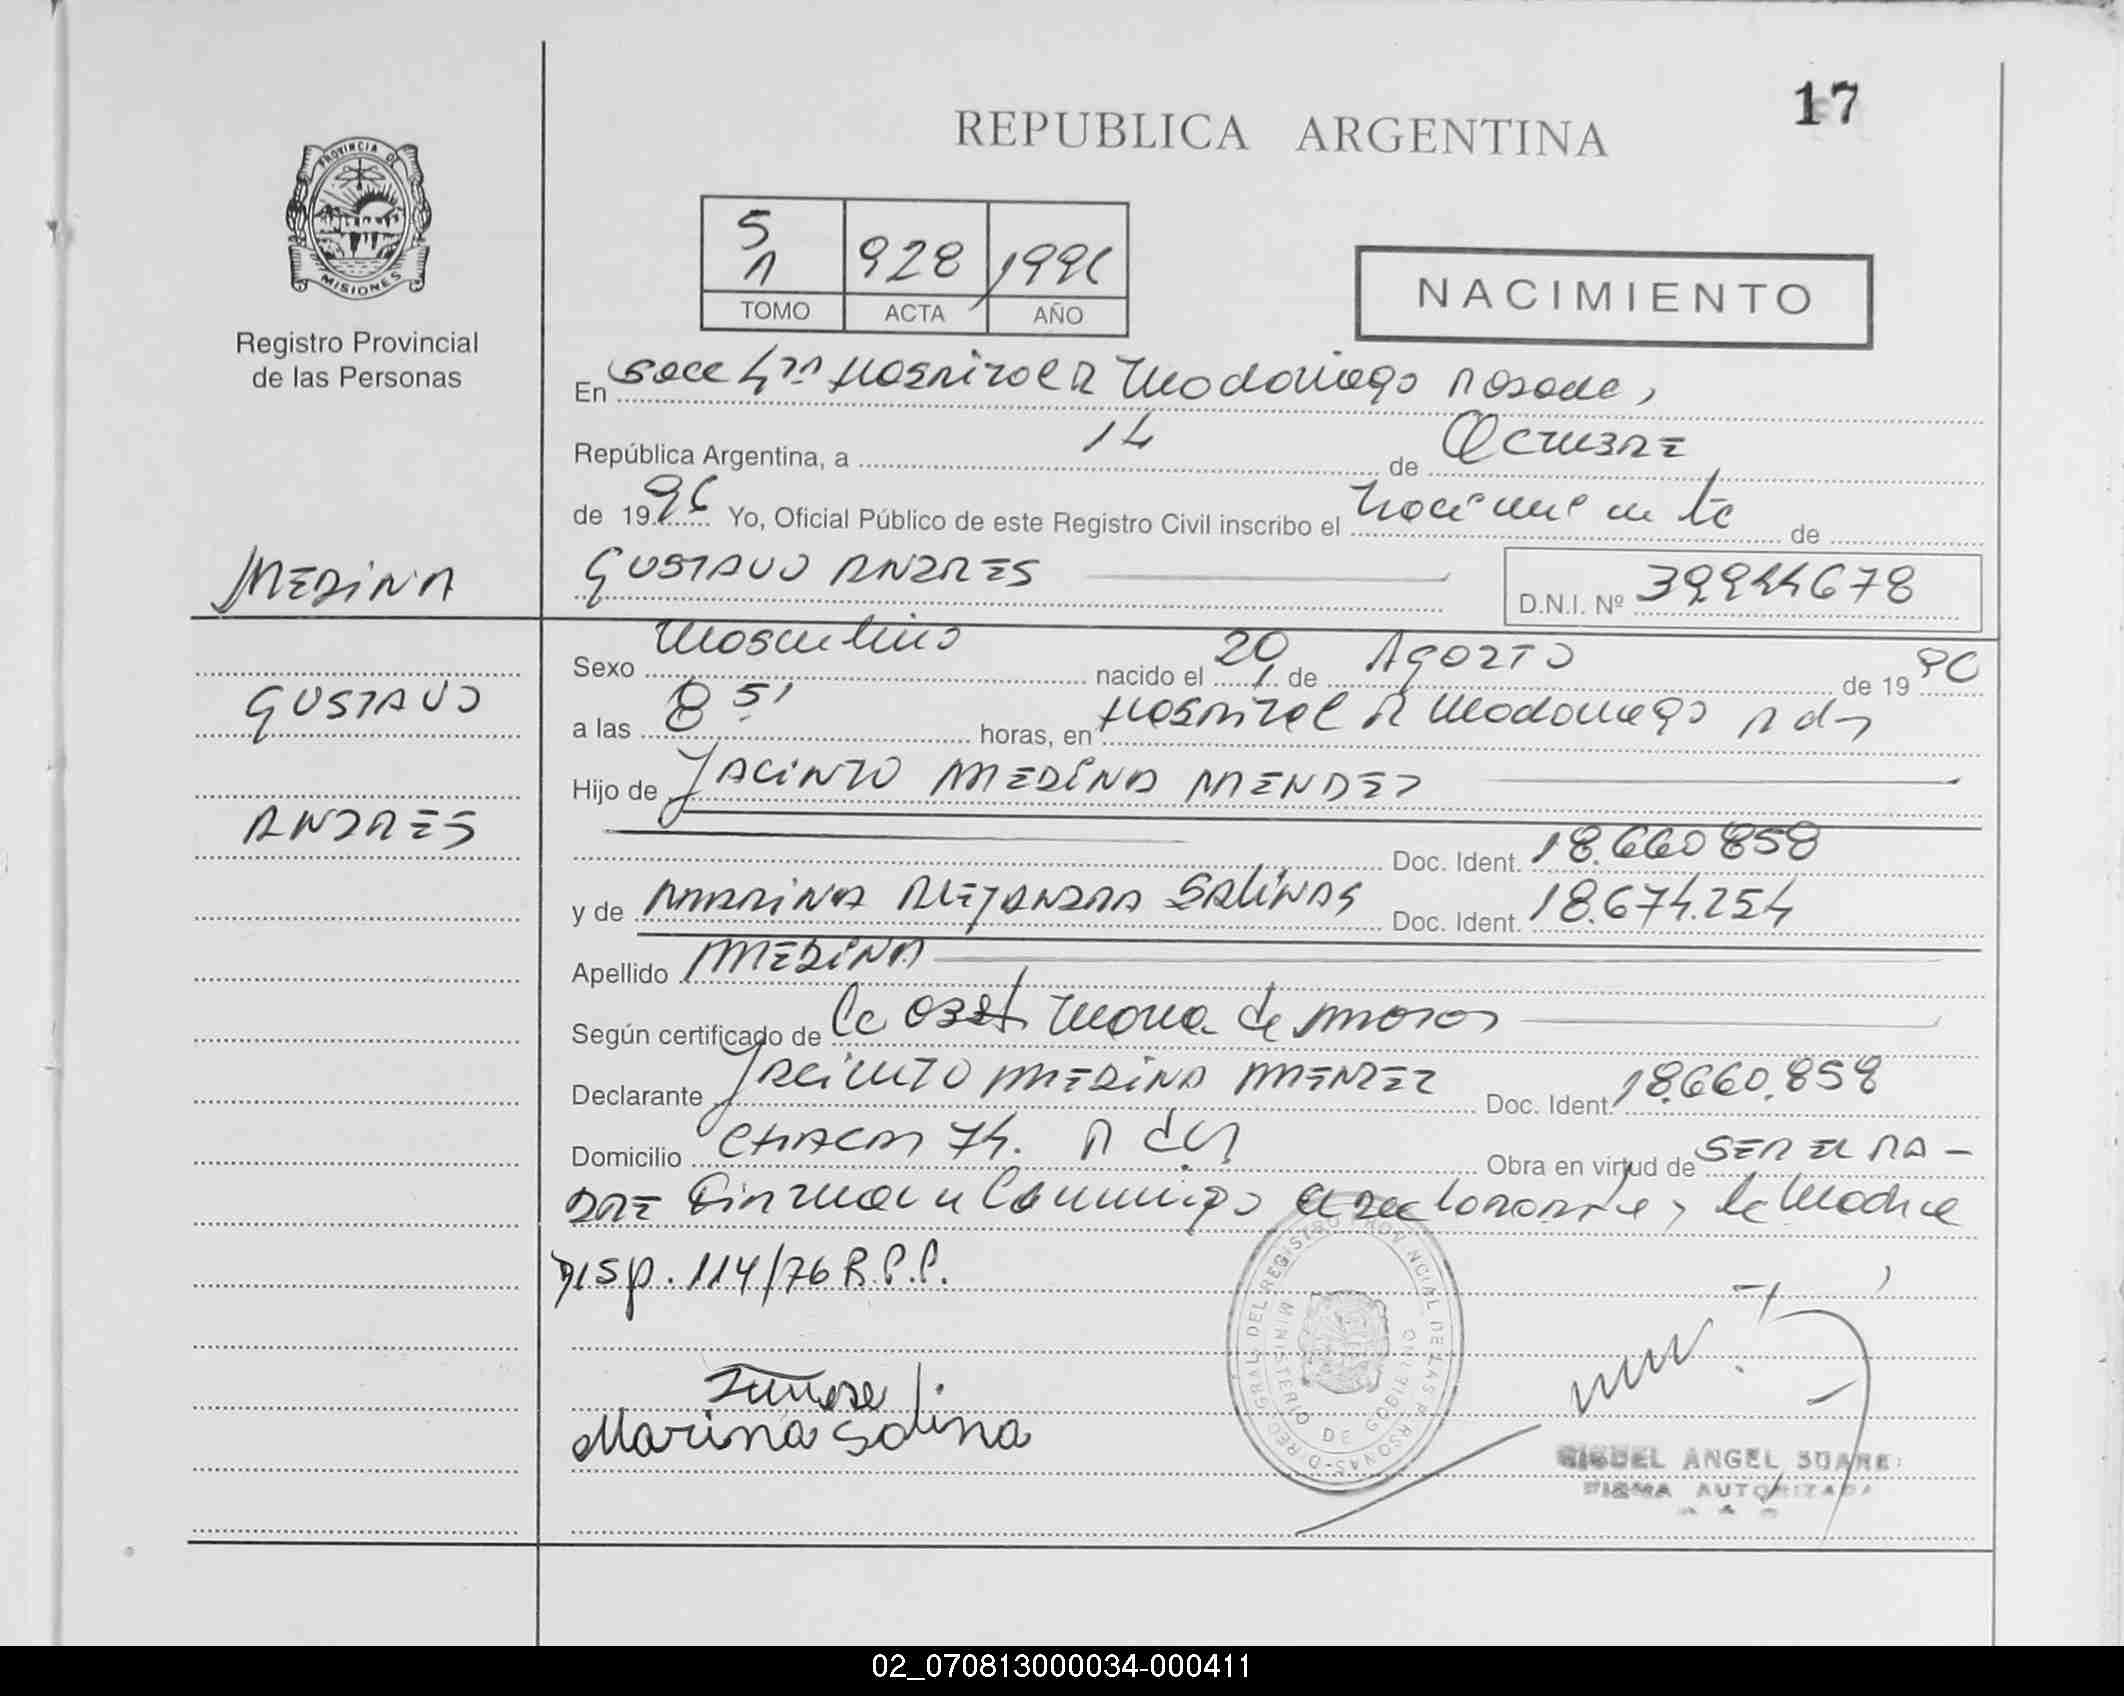 17
REPUBLICA ARGENTINA
PROVINCIA DE
MISIONES
Registro Provincial
de las Personas
5
1 928 1996
TOMO ACTA AÑO
NACIMIENTO
En Hospital R Madariaga Posadas,
República Argentina, a 14 de Octubre
de 1996 Yo, Oficial Público de este Registro Civil inscribo el Nacimiento de
MEDINA GUSTAVO ANDRES D.N.I. Nº 39944678
Sexo Masculino nacido el 20 de Agosto de 19 96
GUSTAVO
a las 8 51 horas, en Hospital R Madariaga P ds
Hijo de JACINTO MEDINA MENDEZ
ANDRES
Doc. Ident. 18.660 858
y de MARINA ALEJANDRA SALINAS Doc. Ident. 18.674.254
Apellido MEDINA
Según certificado de la obst Maria de
Declarante JACINTO MEDINA MENDEZ Doc. Ident. 18.660.858
Domicilio 74. Obra en virtud de SER EL PA-
DRE Firman conmigo el declarante y la Madre
Disp. 114/76 R.P.P.
Marina Salina
DIREC. GRAL. DEL REGISTRO PROVINCIAL DE LAS PERSONAS
MINISTERIO DE GOBIERNO
MIGUEL ANGEL SUARE
FIRMA AUTORIZADA
02_070813000034-000411